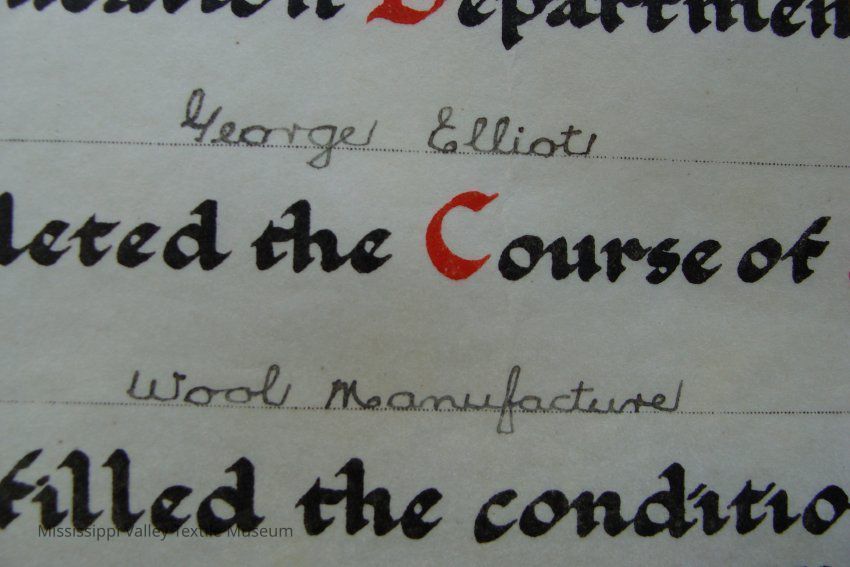 ucation Department
George Elliot
leted the Course of
Wool Manufacture
filled the conditio
Mississippi Valley Textile Museum